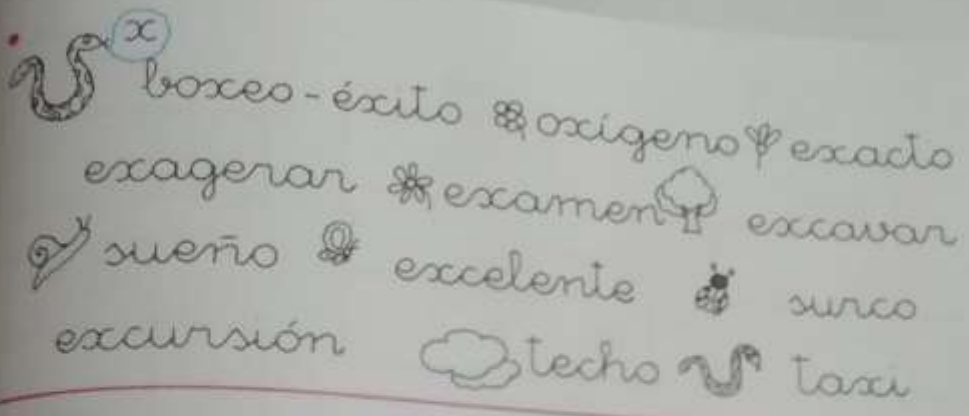 x
boxeo - éxito oxígeno exacto
exagerar examen excavar
sueño excelente surco
excursión techo taxi